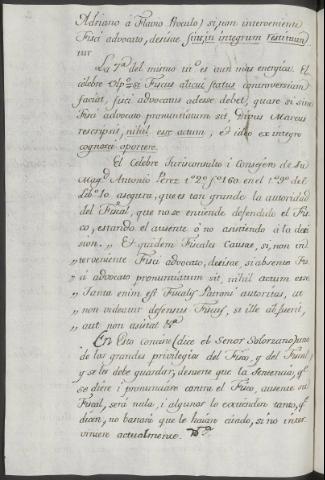 Adriano á Flavio Proculo) si non interveniente
Fisci advocato, decisae sint, in integrum restituun
tur
La 7ª del mismo tit.º es aun mas energica. El
célebre Ulp.º si Fiscus alicui status controversiam
faciat, fisci advocatus adesse debet, quare si sine
Fisci advocato pronuntiatum sit, Divus Marcus
rescripsit, nihil esse actum, et ideo ex integro
cognosci oportere.
El Celebre Jurisconsulto i Consejero de Su
Mag.d Antonio Perez en el 9º del
Lib.º 10. asegura, que es tan grande la autoridad
del Fiscal, que no se entiende defendido el Fis
co, estando el ausente ó no asistiendo á la deci
sion. " Et quidem Fiscales Causae, si, non in
" terveniente Fisci advocato, decisae, si absente Fis
" ci advocato pronuntiatum sit, nihil actum esse
" Tanta enim est Fiscalis Patroni autoritas, ut
" non videatur defensus Fiscus, si ille absuerit,
" aut non asistat &ª
En Esto consiste (dice el Señor Solorzano) uno
de los grandes privilegios del Fisco, y del Fiscal,
y se les debe guardar, de suerte que la Sentencia, q.e
se diere i pronunciare contra el Fisco, ausente su
Fiscal, será nula, i algunos lo extienden tanto, q.e
dicen, no bastará que le haian citado, si no inter
viniere actualmente.